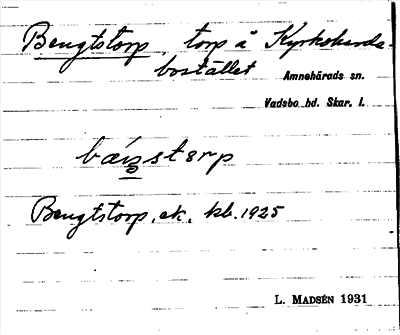 Bengtstorp, torp å Kyrkoherde-
bostället
Amnehärads sn.
Vadsbo hd. Skar. l.
Bengtstorp, ek. kb. 1925
L. MADSÉN 1931